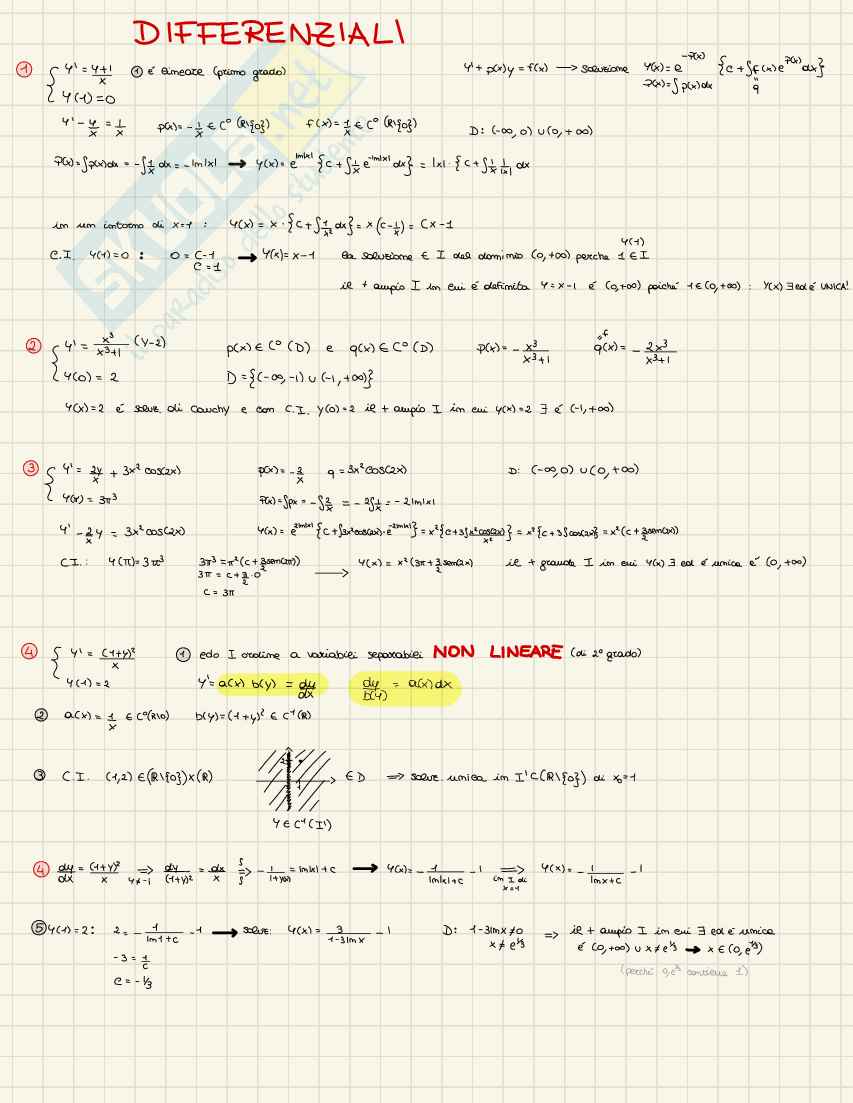 DIFFERENZIALI
① { y' = (y+1)/x ① è lineare (primo grado) y' + p(x)y = f(x) → soluzione y(x) = e^(-P(x)) {c + ∫f(x) e^(P(x)) dx}
y(1) = 0 P(x) = ∫p(x)dx q
y' - y/x = 1/x p(x) = -1/x ∈ C⁰(R\{0}) f(x) = 1/x ∈ C⁰(R\{0}) D: (-∞, 0) ∪ (0, +∞)
P(x) = ∫p(x)dx = -∫1/x dx = -ln|x| → y(x) = e^(ln|x|) {c + ∫1/x e^(-ln|x|) dx} = |x| · {c + ∫1/x 1/|x| dx
in un intorno di x=1 : y(x) = x · {c + ∫1/x² dx} = x(c - 1/x) = cx - 1
C.I. y(1) = 0 : 0 = c-1 → y(x) = x-1 la soluzione ∈ I del dominio (0, +∞) perche 1 ∈ I
y(1)
c = 1
il + ampio I in cui è definita y = x-1 è (0, +∞) poiché 1 ∈ (0, +∞) : y(x) ∃ ed è UNICA!
② { y' = x³/(x³+1) (y-2) p(x) ∈ C⁰(D) e q(x) ∈ C⁰(D) p(x) = - x³/(x³+1) q(x) = - 2x³/(x³+1)
f
y(0) = 2 D = {(-∞, -1) ∪ (-1, +∞)}
y(x) = 2 è soluz. di Cauchy e con C.I. y(0) = 2 il + ampio I in cui y(x) = 2 ∃ è (-1, +∞)
③ { y' = 2y/x + 3x² cos(2x) p(x) = -2/x q = 3x² cos(2x) D: (-∞, 0) ∪ (0, +∞)
y(π) = 3π³ P(x) = ∫px = -∫2/x = -2∫1/x = -2 ln|x|
y' - 2/x y = 3x² cos(2x) y(x) = e^(2ln|x|) {c + ∫3x² cos(2x) · e^(-2ln|x|)} = x² {c + 3∫x² cos(2x)/x²} = x² {c + 3∫cos(2x)} = x² (c + 3/2 sen(2x))
C.I.: y(π) = 3π³ 3π³ = π² (c + 3/2 sen(2π)) → y(x) = x² (3π + 3/2 sen(2x) il + grande I in cui y(x) ∃ ed è unica è (0, +∞)
3π = c + 3/2 · 0
c = 3π
④ { y' = (1+y)²/x ① edo I ordine a variabili separabili NON LINEARE (di 2° grado)
y(-1) = 2 y' = a(x) b(y) = dy/dx dy/b(y) = a(x)dx
② a(x) = 1/x ∈ C⁰(R\0) b(y) = (1+y)² ∈ C¹(R)
③ C.I. (1,2) ∈ (R\{0}) x (R) 2 1 ∈ D ⟹ soluz unica in I' ⊂ (R\{0}) di x₀=1
y ∈ C¹(I')
④ dy/dx = (1+y)²/x ⟹ y≠-1 dy/(1+y)² = dx/x ⟹ ∫ ∫ - 1/(1+y(x)) = ln|x| + c → y(x) = - 1/(ln|x|+c) - 1 ⟹ in I di x=1 y(x) = - 1/(lnx+c) - 1
⑤ y(1) = 2: 2 = - 1/(ln1+c) - 1 → soluz: y(x) = 3/(1-3lnx) - 1 D: 1-3lnx ≠ 0 ⟹ il + ampio I in cui ∃ ed è unica
x ≠ e^(1/3) è (0, +∞) ∪ x ≠ e^(1/3) → x ∈ (0, e^(1/3))
-3 = 1/c
c = -1/3
SKUOLA.net
il paradiso dello studente